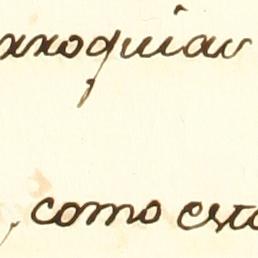 rroquias
, como esta